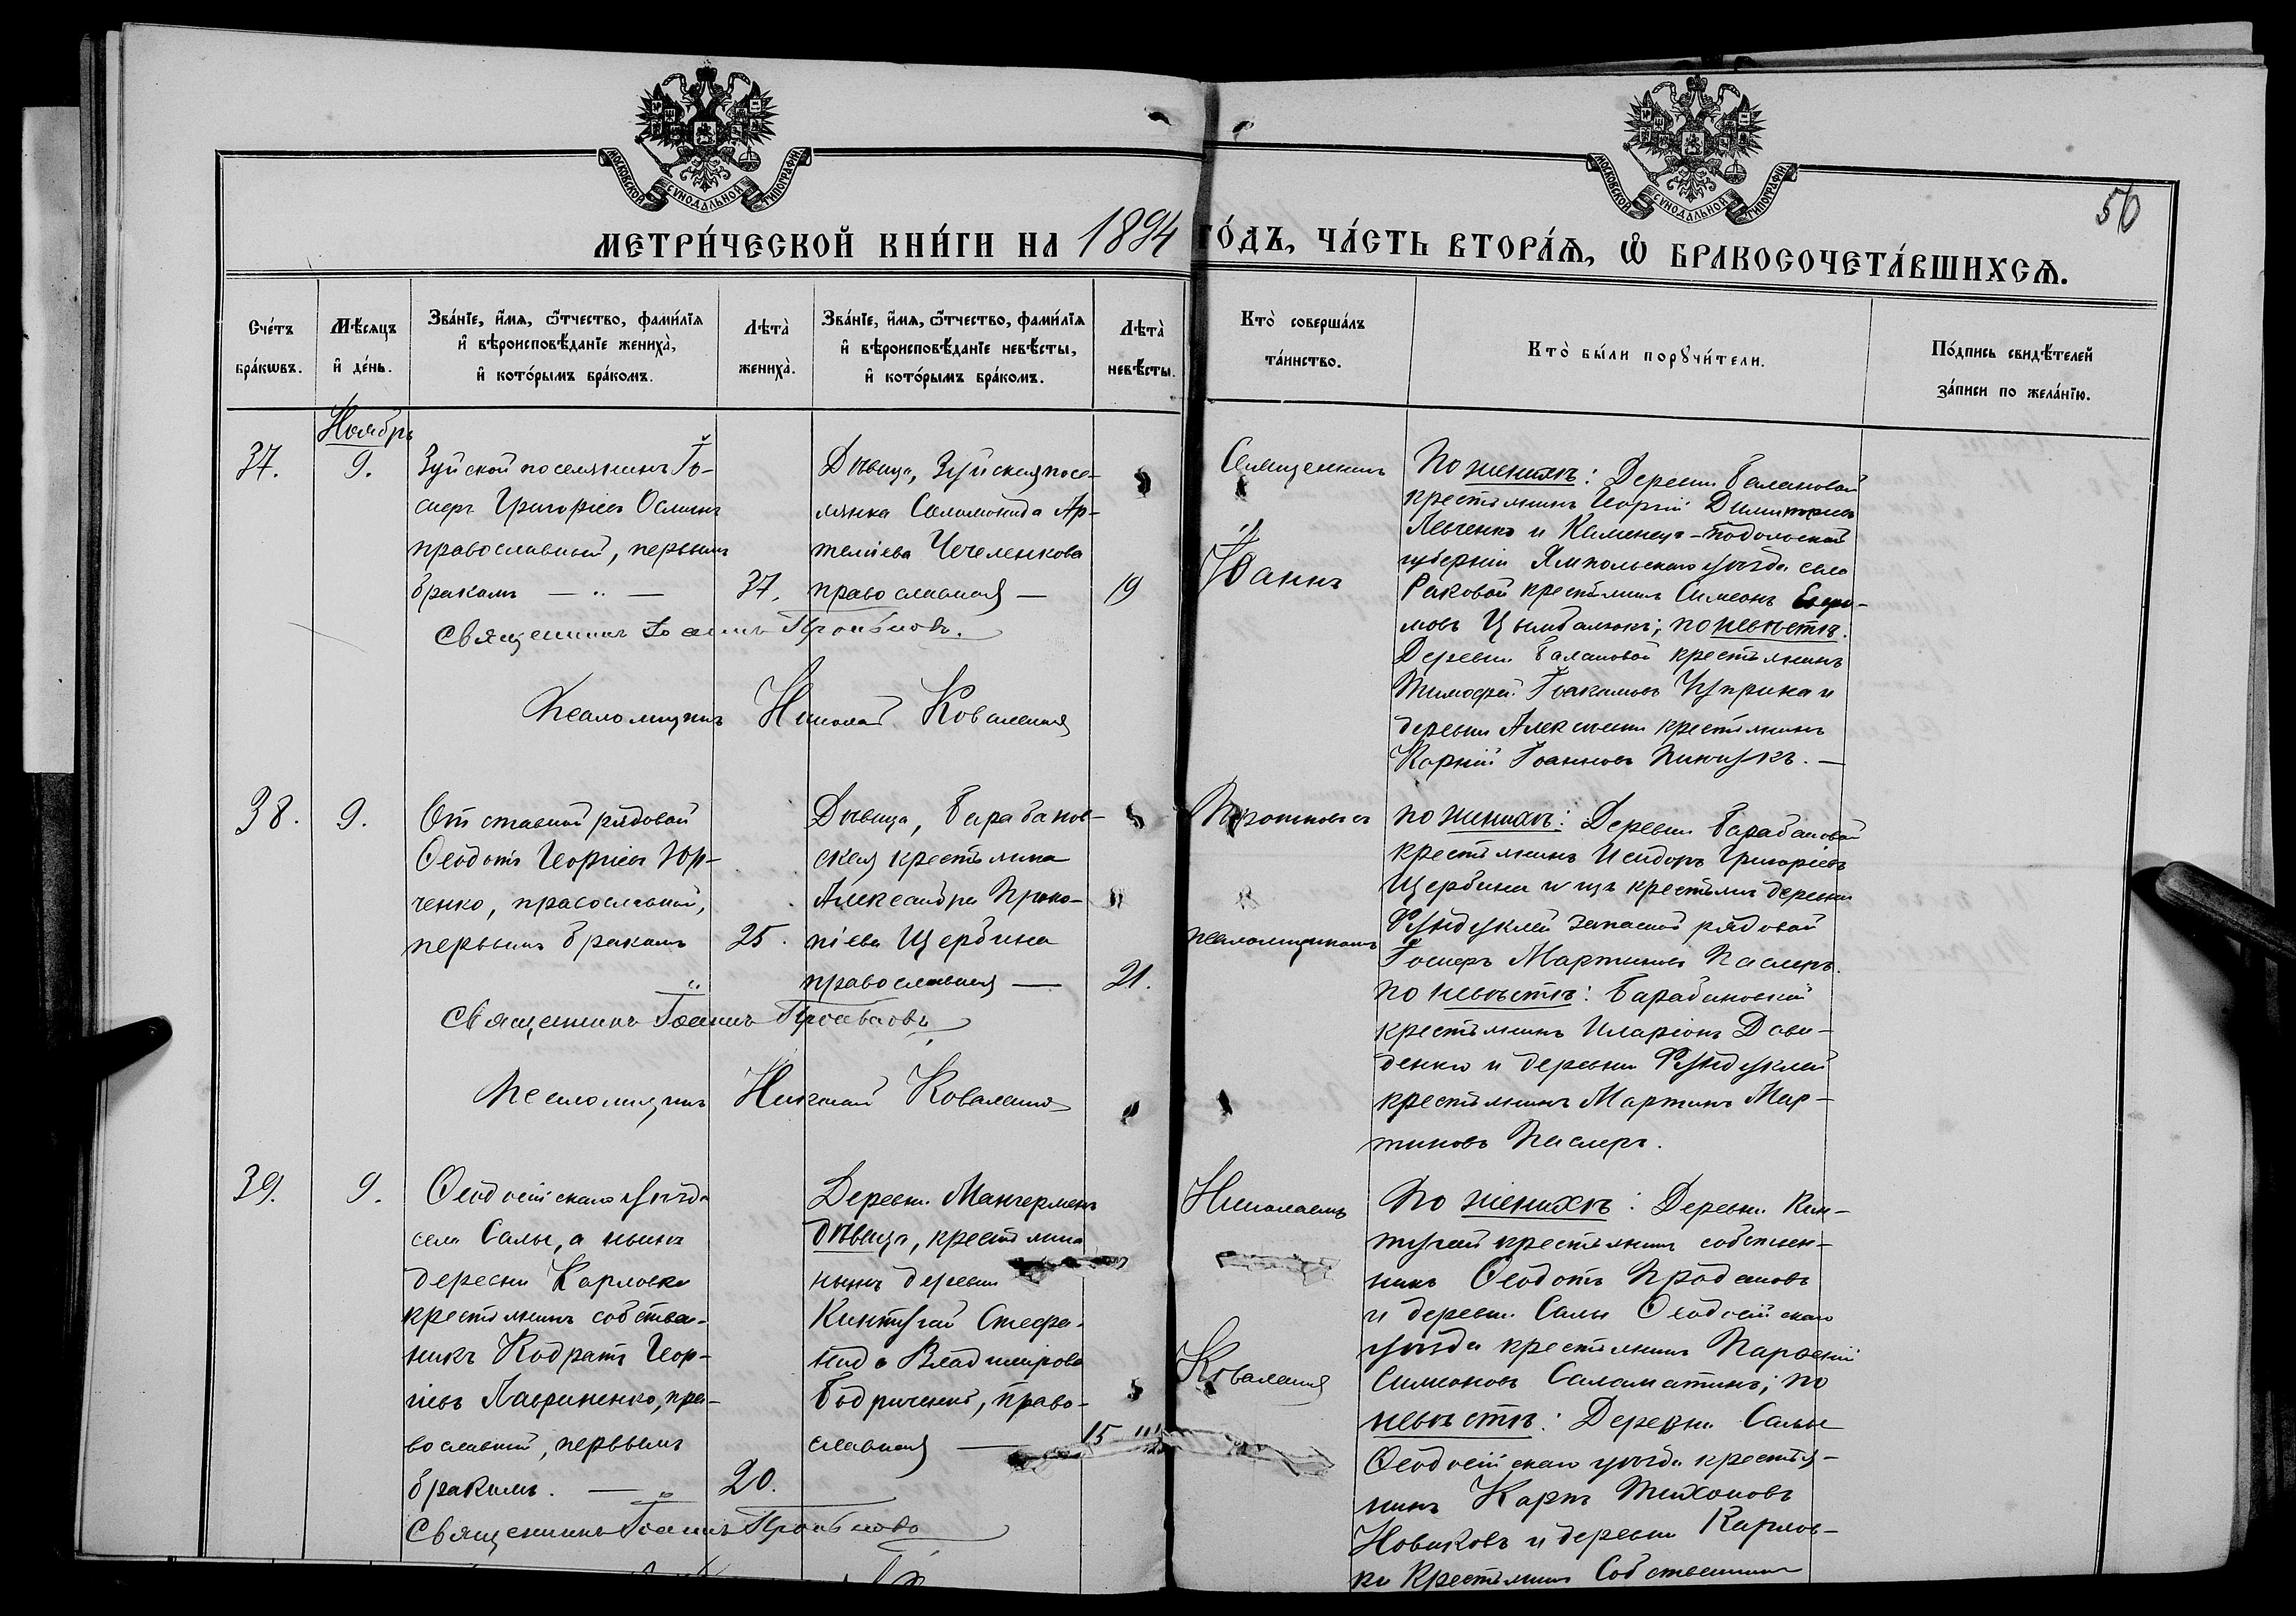 МОСКОВСКОЙ СУНОДАЛЬНОЙ ТИПОГРАФІИ.
МОСКОВСКОЙ СУНОДАЛЬНОЙ ТИПОГРАФІИ.
56
МЕТРИ́ЧЕСКОЙ КНИ́ГИ НА 1894 ГО́ДЪ, ЧА́СТЬ ВТОРА́Ѧ, Ѡ҆ БРАКОСОЧЕТА́ВШИХСѦ.
Сче́тъ бра́кѡвъ.
Мѣ́сяцъ и҆ де́нь.
Зва́нїе, и҆́мѧ, ѻ҆́тчество, фами́лїѧ
и҆ вѣроисповѣ́данїе жениха̀,
и҆ кото́рымъ бра́комъ.
Лѣта̀ жениха̀.
Зва́нїе, и҆́мѧ, ѻ҆́тчество, фами́лїѧ
и҆ вѣроисповѣ́данїе невѣ́сты,
и҆ кото́рымъ бра́комъ.
Лѣта̀ невѣ́сты.
Кто̀ соверша́лъ та́инство.
Кто̀ бы́ли порꙋчи́тели.
По́дпись свидѣ́телей
за́писи по жела́нїю.
Ноябрь
37.
9.
Зуйской поселянинъ Іо-
сифъ Григоріевъ Осминъ
православный, первымъ
бракомъ — „ —
37.
Дѣвица, Зуйская посе-
лянка Соломонида Ар-
темiева Чечеленкова
православная —
19
Священникъ Іоаннъ
Николай Ковалевъ
Священникъ
Іоаннъ
По женихѣ: Деревни Балановой
крестьянинъ Георгій Димитріевъ
Левченко и Каменецъ-Подольской
губерніи Ямпольскаго уѣзда села
Раковой крестьянинъ Симеонъ
мовъ Цымбалюкъ; по невѣстѣ.
Деревни Балановой крестьянинъ
Тимофей Іоакимовъ Чуприна и
деревни крестьянинъ
Корній Іоанновъ
38.
9.
Отставной рядовой
Ѳеодотъ Георгіевъ Юр-
ченко, православный,
первымъ бракомъ
25.
Дѣвица, Барабанов-
ская крестьянка
Александра Проко-
піева Щербина
православная —
21.
Священникъ Іоаннъ
Псаломщикъ Николай
псаломщикомъ
По женихѣ: Деревни Барабановой
крестьянинъ Исидоръ Григоріевъ
Щербина и изъ крестьянъ деревни
Фундуклей запасной рядовой
Іосифъ Мартиновъ
по невѣстѣ: Барабановскій
крестьянинъ Иларіонъ Дави-
денко и деревни Фундуклей
крестьянинъ Мартинъ Мар-
тиновъ
39.
9.
Ѳеодосійскаго уѣзда
села Салы, а нынѣ
деревни Карловки
крестьянинъ собствен-
никъ Кодратъ Геор-
гіевъ Лавриненко, пра-
вославный, первымъ
бракомъ. — „
20.
Деревни Мангермень
дѣвица, крестьянка
нынѣ деревни
Кинтугай Стефа-
нида Владимірова
право-
славная —
15
Священникъ Іоаннъ
Николаемъ
По женихѣ: Деревни Кин-
тугай крестьянинъ собствен-
никъ Ѳеодотъ Продановъ
и деревни Салы Ѳеодосійскаго
уѣзда крестьянинъ
Симеоновъ Саламатинъ; по
невѣстѣ: Деревни Салы
Ѳеодосійскаго уѣзда крестья-
нинъ Карпъ Тихоновъ
Новиковъ и деревни Карлов-
ки Крестьянинъ Собственникъ